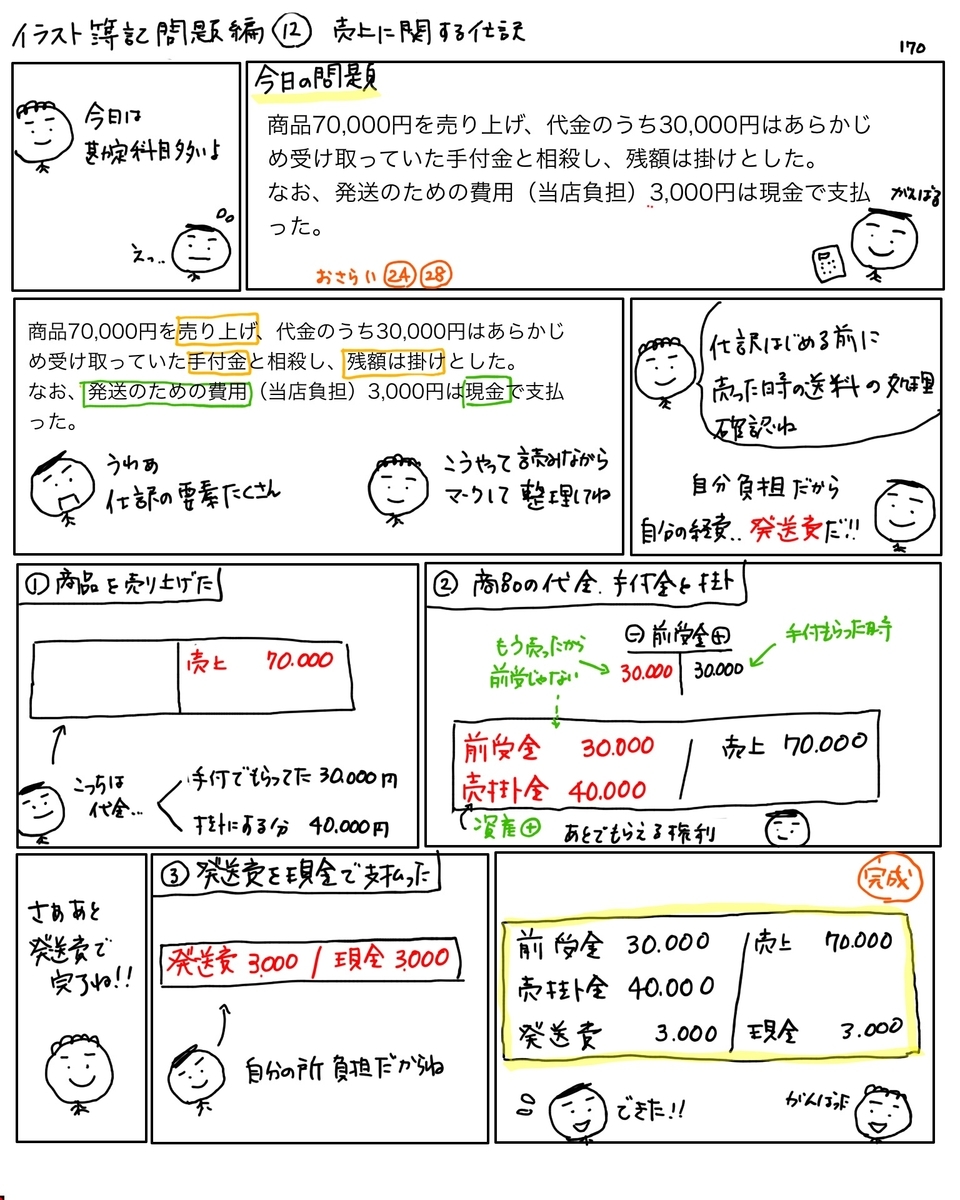 イラスト簿記問題編⑫ 売上に関する仕訳
170
今日は
勘定科目多いよ
えっ..
今日の問題
商品70,000円を売り上げ、代金のうち30,000円はあらかじ
め受け取っていた手付金と相殺し、残額は掛けとした。
なお、発送のための費用（当店負担）3,000円は現金で支払
った。
がんばる
おさらい㉔㉘
商品70,000円を売り上げ、代金のうち30,000円はあらかじ
め受け取っていた手付金と相殺し、残額は掛けとした。
なお、発送のための費用（当店負担）3,000円は現金で支払
った。
うわぁ
仕訳の要素たくさん
こうやって読みながら
マークして整理してね
仕訳はじめる前に
売った時の送料の処理
確認ね
自分負担だから
自分の経費..発送費だ!!
①商品を売り上げた
売上 70.000
こっちは
代金...
手付でもらってた30.000円
掛にする分 40.000円
②商品の代金.手付金と掛
⊖前受金⊕
30.000 30.000
もう売ったから
前受じゃない
手付もらった時
前受金 30.000 / 売上 70.000
売掛金 40.000
資産⊕ あとでもらえる権利
さぁあと
発送費で
完了ね!!
③発送費を現金で支払った
発送費 3000 / 現金 3.000
自分の所負担だからね
完成
前受金 30.000 / 売上 70.000
売掛金 40.000
発送費 3.000 現金 3.000
できた!!
がんばった